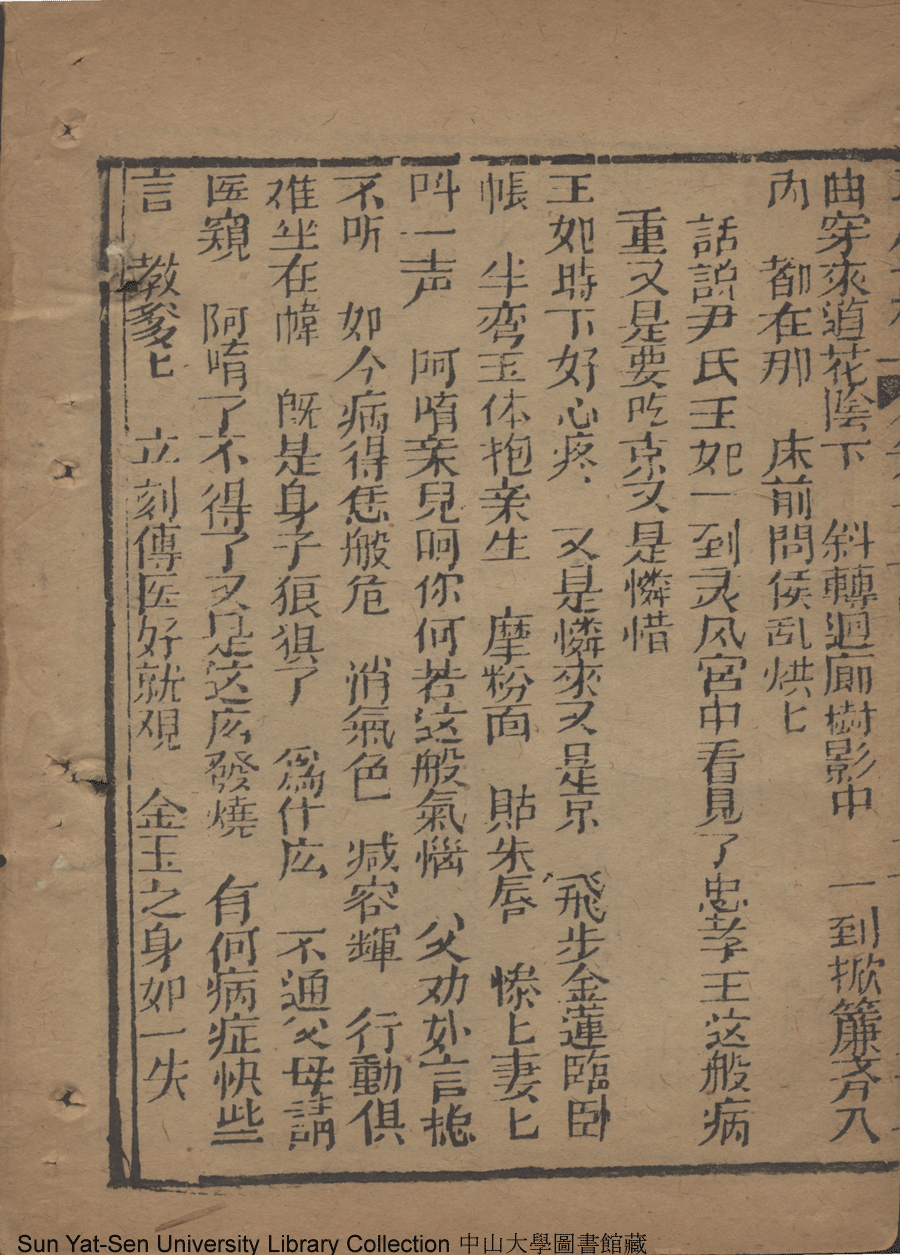 曲穿來道花陰下　斜轉迴廊樹影中　一到掀簾齐入
內　都在那　床前問侯乱烘匕
話説尹氏王妃一到灵风宮中看見了忠孝王这般病
重又是要吃京又是憐惜
王妃時下好心疼　又是憐來又是京　飛步金蓮臨卧
帳　半弯玉体抱亲生　摩粉面　貼朱唇　慘匕妻匕
叫一声　阿唷亲兒呵你何若这般氣惱　父劝妙言揔
不听　如今病得恁般危　消氣色　减容輝　行動俱
难坐在幃　旣是身子狼狽了　爲什広　不通父母請
医窺　阿唷了不得了又是这広發燒　有何病症快些
言　教爹匕　立刻傳医好就观　金玉之身如一失
Sun Yat-Sen University Library Collection 中山大學圖書館藏